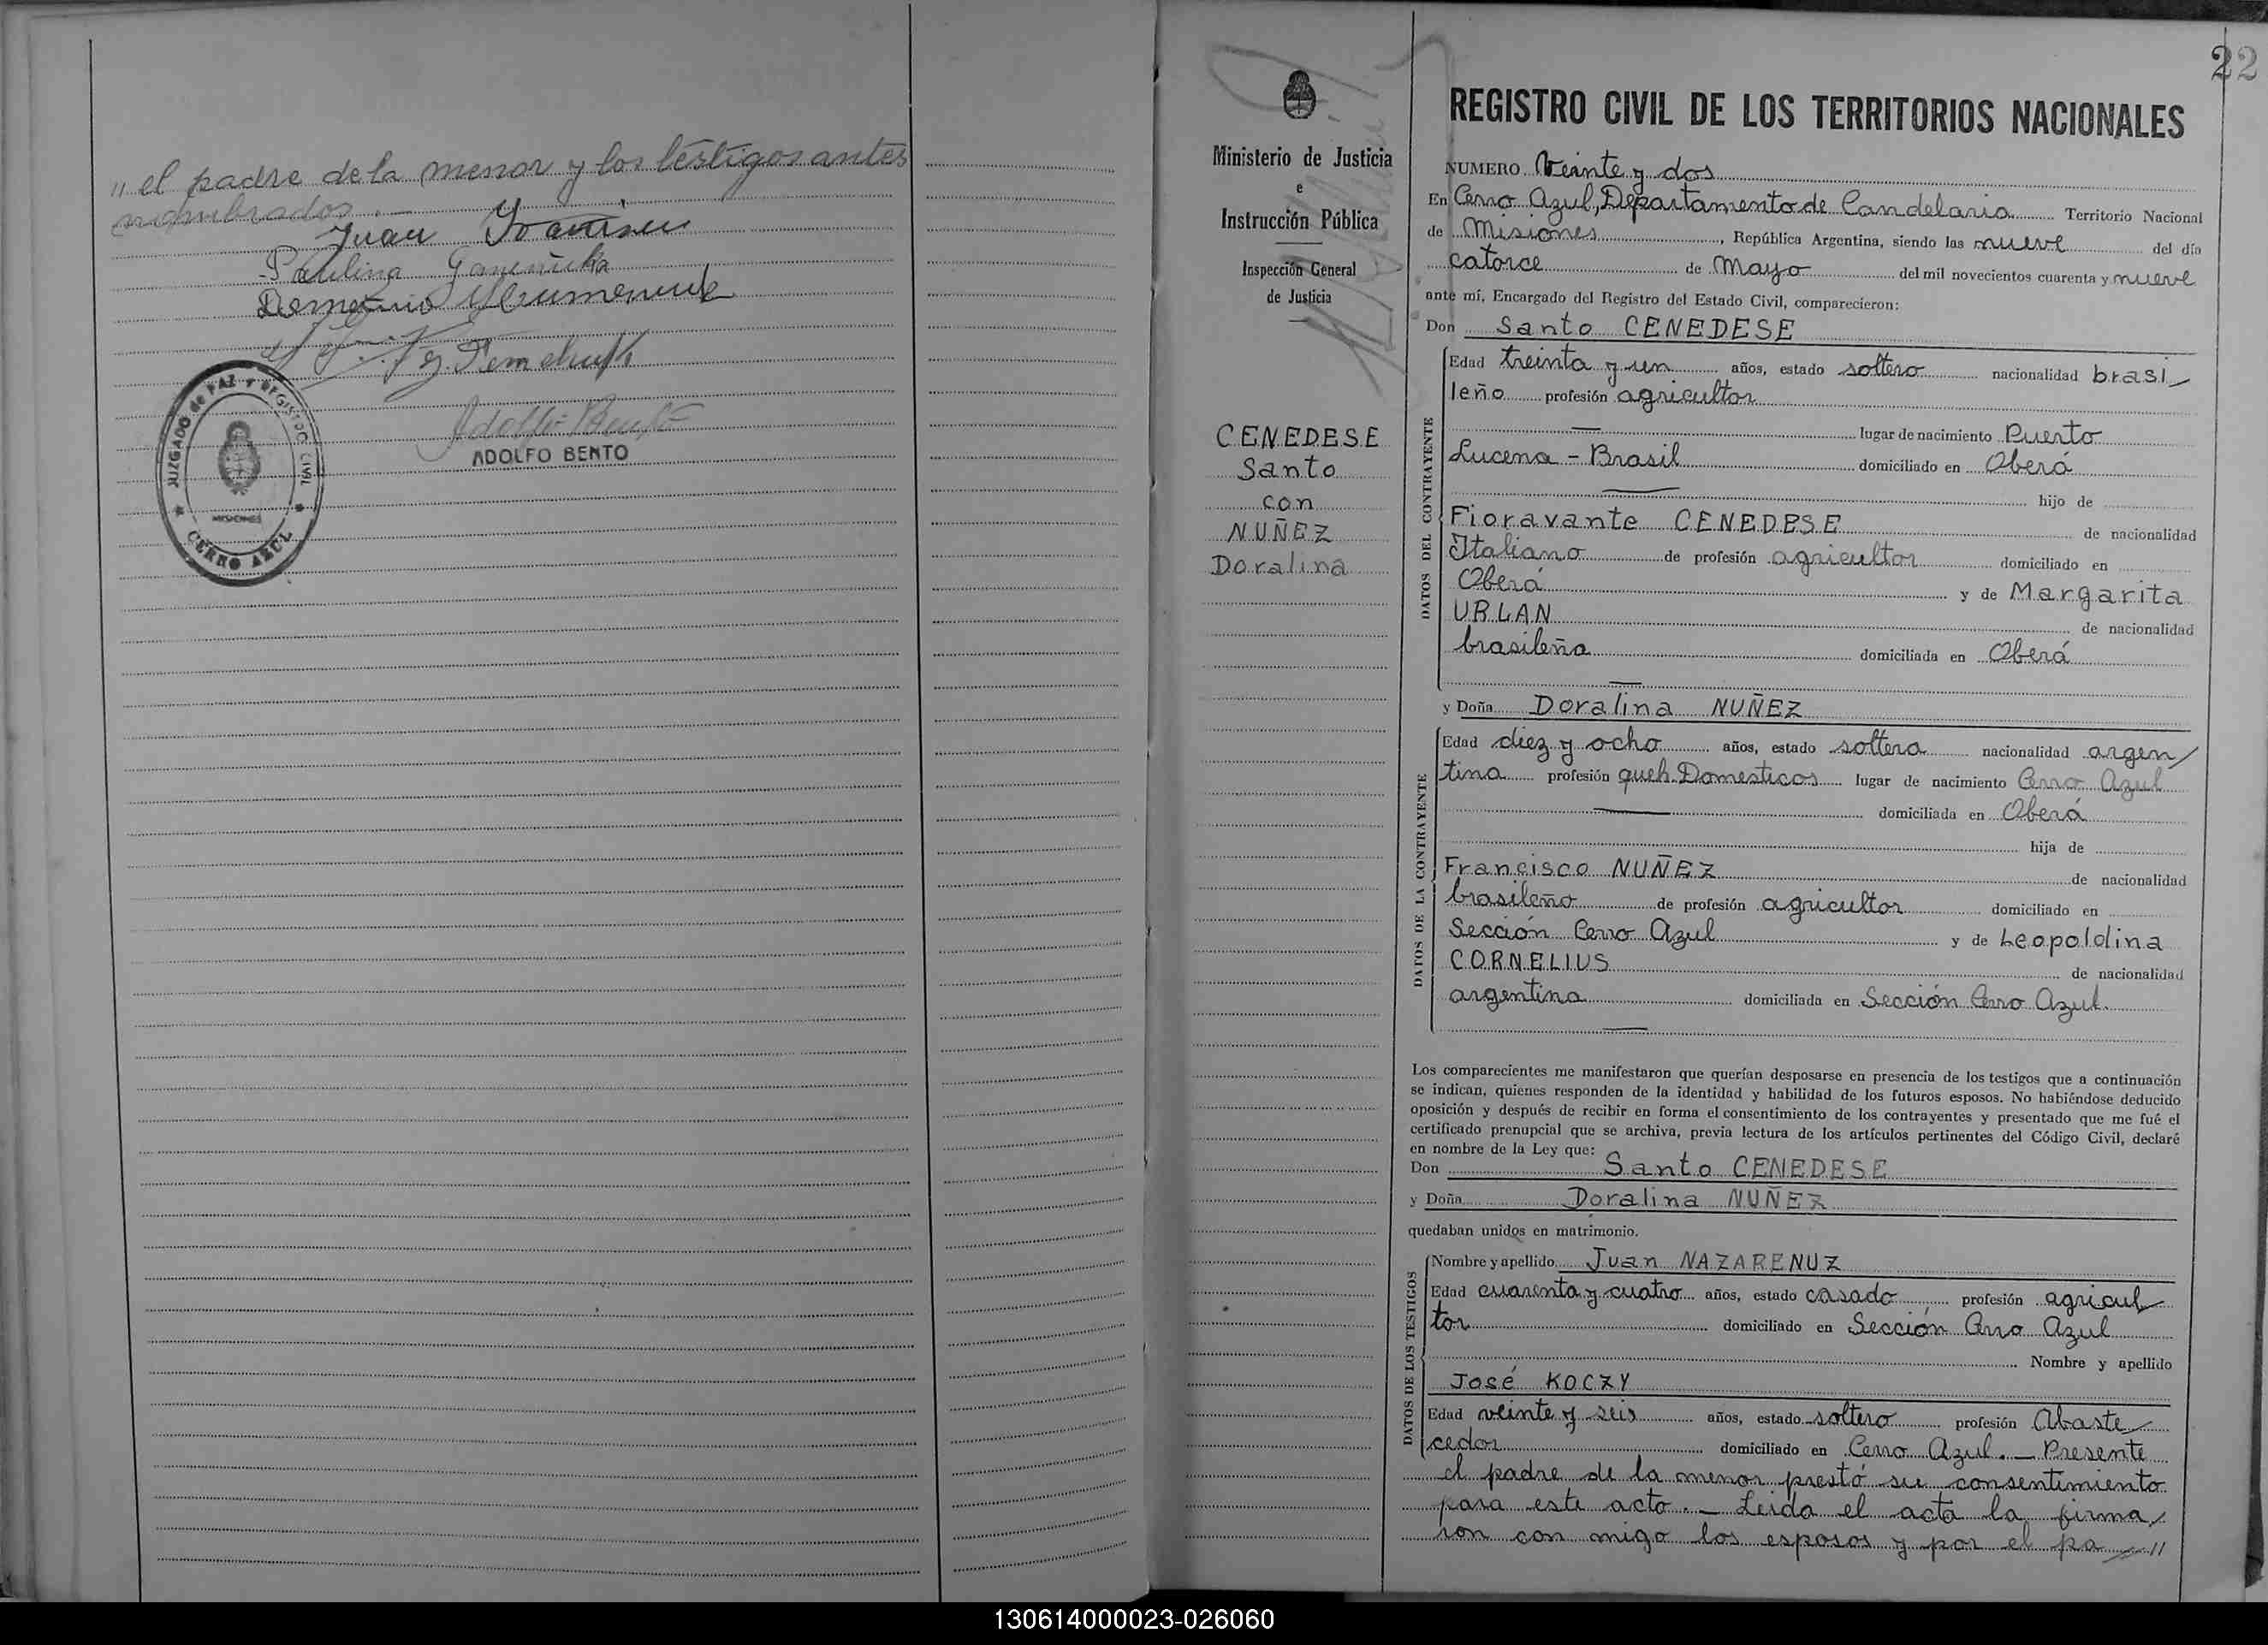 " el padre de la menor y los testigos antes
nombrados.—
Juan
Paulina
Demetrio
ADOLFO BENTO
JUZGADO de PAZ y REGISTRO CIVIL
MISIONES
CERRO AZUL
22
Ministerio de Justicia
e
Instrucción Pública
Inspección General
de Justicia
CENEDESE
Santo
con
NUÑEZ
Doralina
REGISTRO CIVIL DE LOS TERRITORIOS NACIONALES
NUMERO Veinte y dos
En Cerro Azul, Departamento de Candelaria Territorio Nacional
de Misiones, República Argentina, siendo las nueve del día
catorce de Mayo del mil novecientos cuarenta y nueve
ante mí, Encargado del Registro del Estado Civil, comparecieron:
Don Santo CENEDESE
DATOS DEL CONTRAYENTE
Edad treinta y un años, estado soltero nacionalidad brasi
leño profesión agricultor
— lugar de nacimiento Puerto
Lucena - Brasil domiciliado en Oberá
— hijo de
Fioravante CENEDESE de nacionalidad
Italiano de profesión agricultor domiciliado en
Oberá y de Margarita
URLAN de nacionalidad
brasileña domiciliada en Oberá
—
y Doña Doralina NUÑEZ
DATOS DE LA CONTRAYENTE
Edad diez y ocho años, estado soltera nacionalidad argen
tina profesión queh. Domesticos lugar de nacimiento Cerro Azul
— domiciliada en Oberá
hija de
Francisco NUÑEZ de nacionalidad
brasileño de profesión agricultor domiciliado en
Sección Cerro Azul y de Leopoldina
CORNELIUS de nacionalidad
argentina domiciliada en Sección Cerro Azul.
—
Los comparecientes me manifestaron que querían desposarse en presencia de los testigos que a continuación
se indican, quienes responden de la identidad y habilidad de los futuros esposos. No habiéndose deducido
oposición y después de recibir en forma el consentimiento de los contrayentes y presentado que me fué el
certificado prenupcial que se archiva, previa lectura de los artículos pertinentes del Código Civil, declaré
en nombre de la Ley que:
Don Santo CENEDESE
y Doña Doralina NUÑEZ
quedaban unidos en matrimonio.
DATOS DE LOS TESTIGOS
Nombre y apellido Juan NAZARENUZ
Edad cuarenta y cuatro años, estado casado profesión agricul
tor domiciliado en Sección Cerro Azul
Nombre y apellido
José KOCZY
Edad veinte y seis años, estado soltero profesión Abaste
cedor domiciliado en Cerro Azul.— Presente
el padre de la menor prestó su consentimiento
para este acto.— Leida el acta la firma
ron con migo los esposos y por el pa "
130614000023-026060